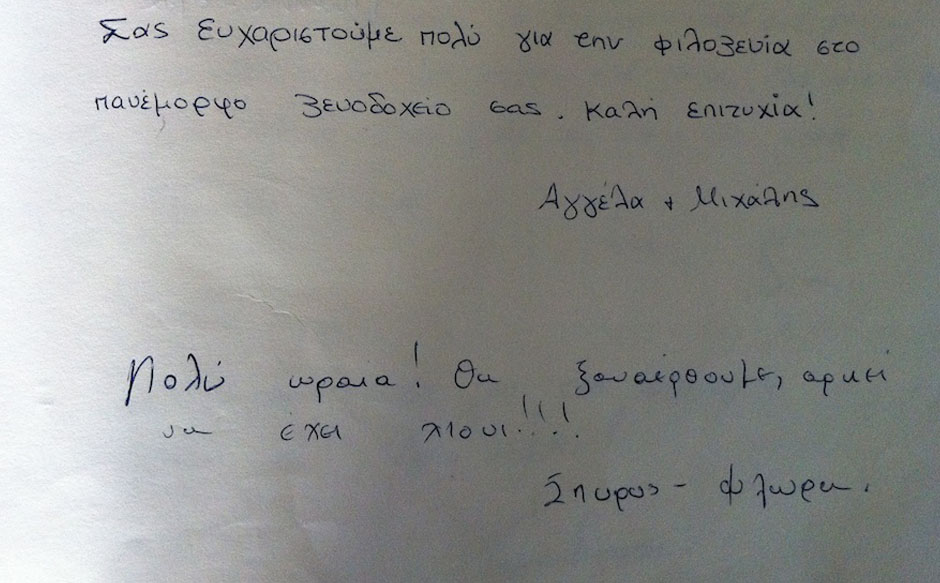 Σας ευχαριστούμε πολύ για την φιλοξενία στο
πανέμορφο ξενοδοχείο σας. Καλή επιτυχία!
Αγγέλα + Μιχάλης
Πολύ ωραια! Θα ξαναέρθουμε, αρκεί
να έχει χιονι!!!!
Σπυρος - Φλωρα.